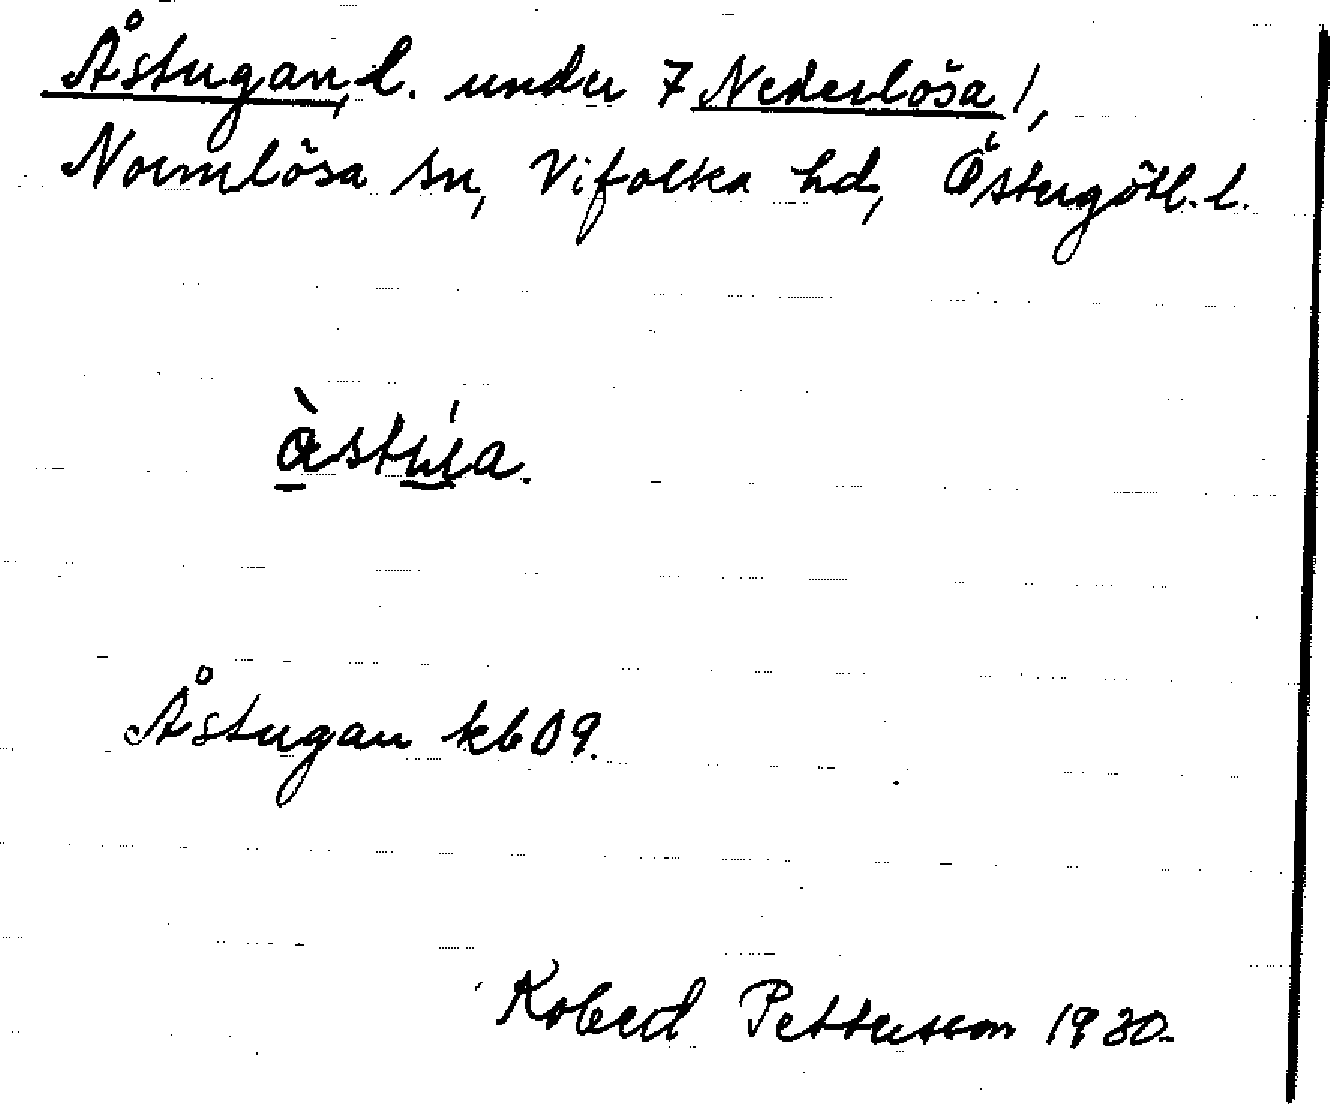 Åstugan, l. under 7 Nederlösa /,
Normlösa sn, Vifolka hd, Östergötl. l.
àstúa.
Åstugan kb 09.
Robert Pettersson 1930.